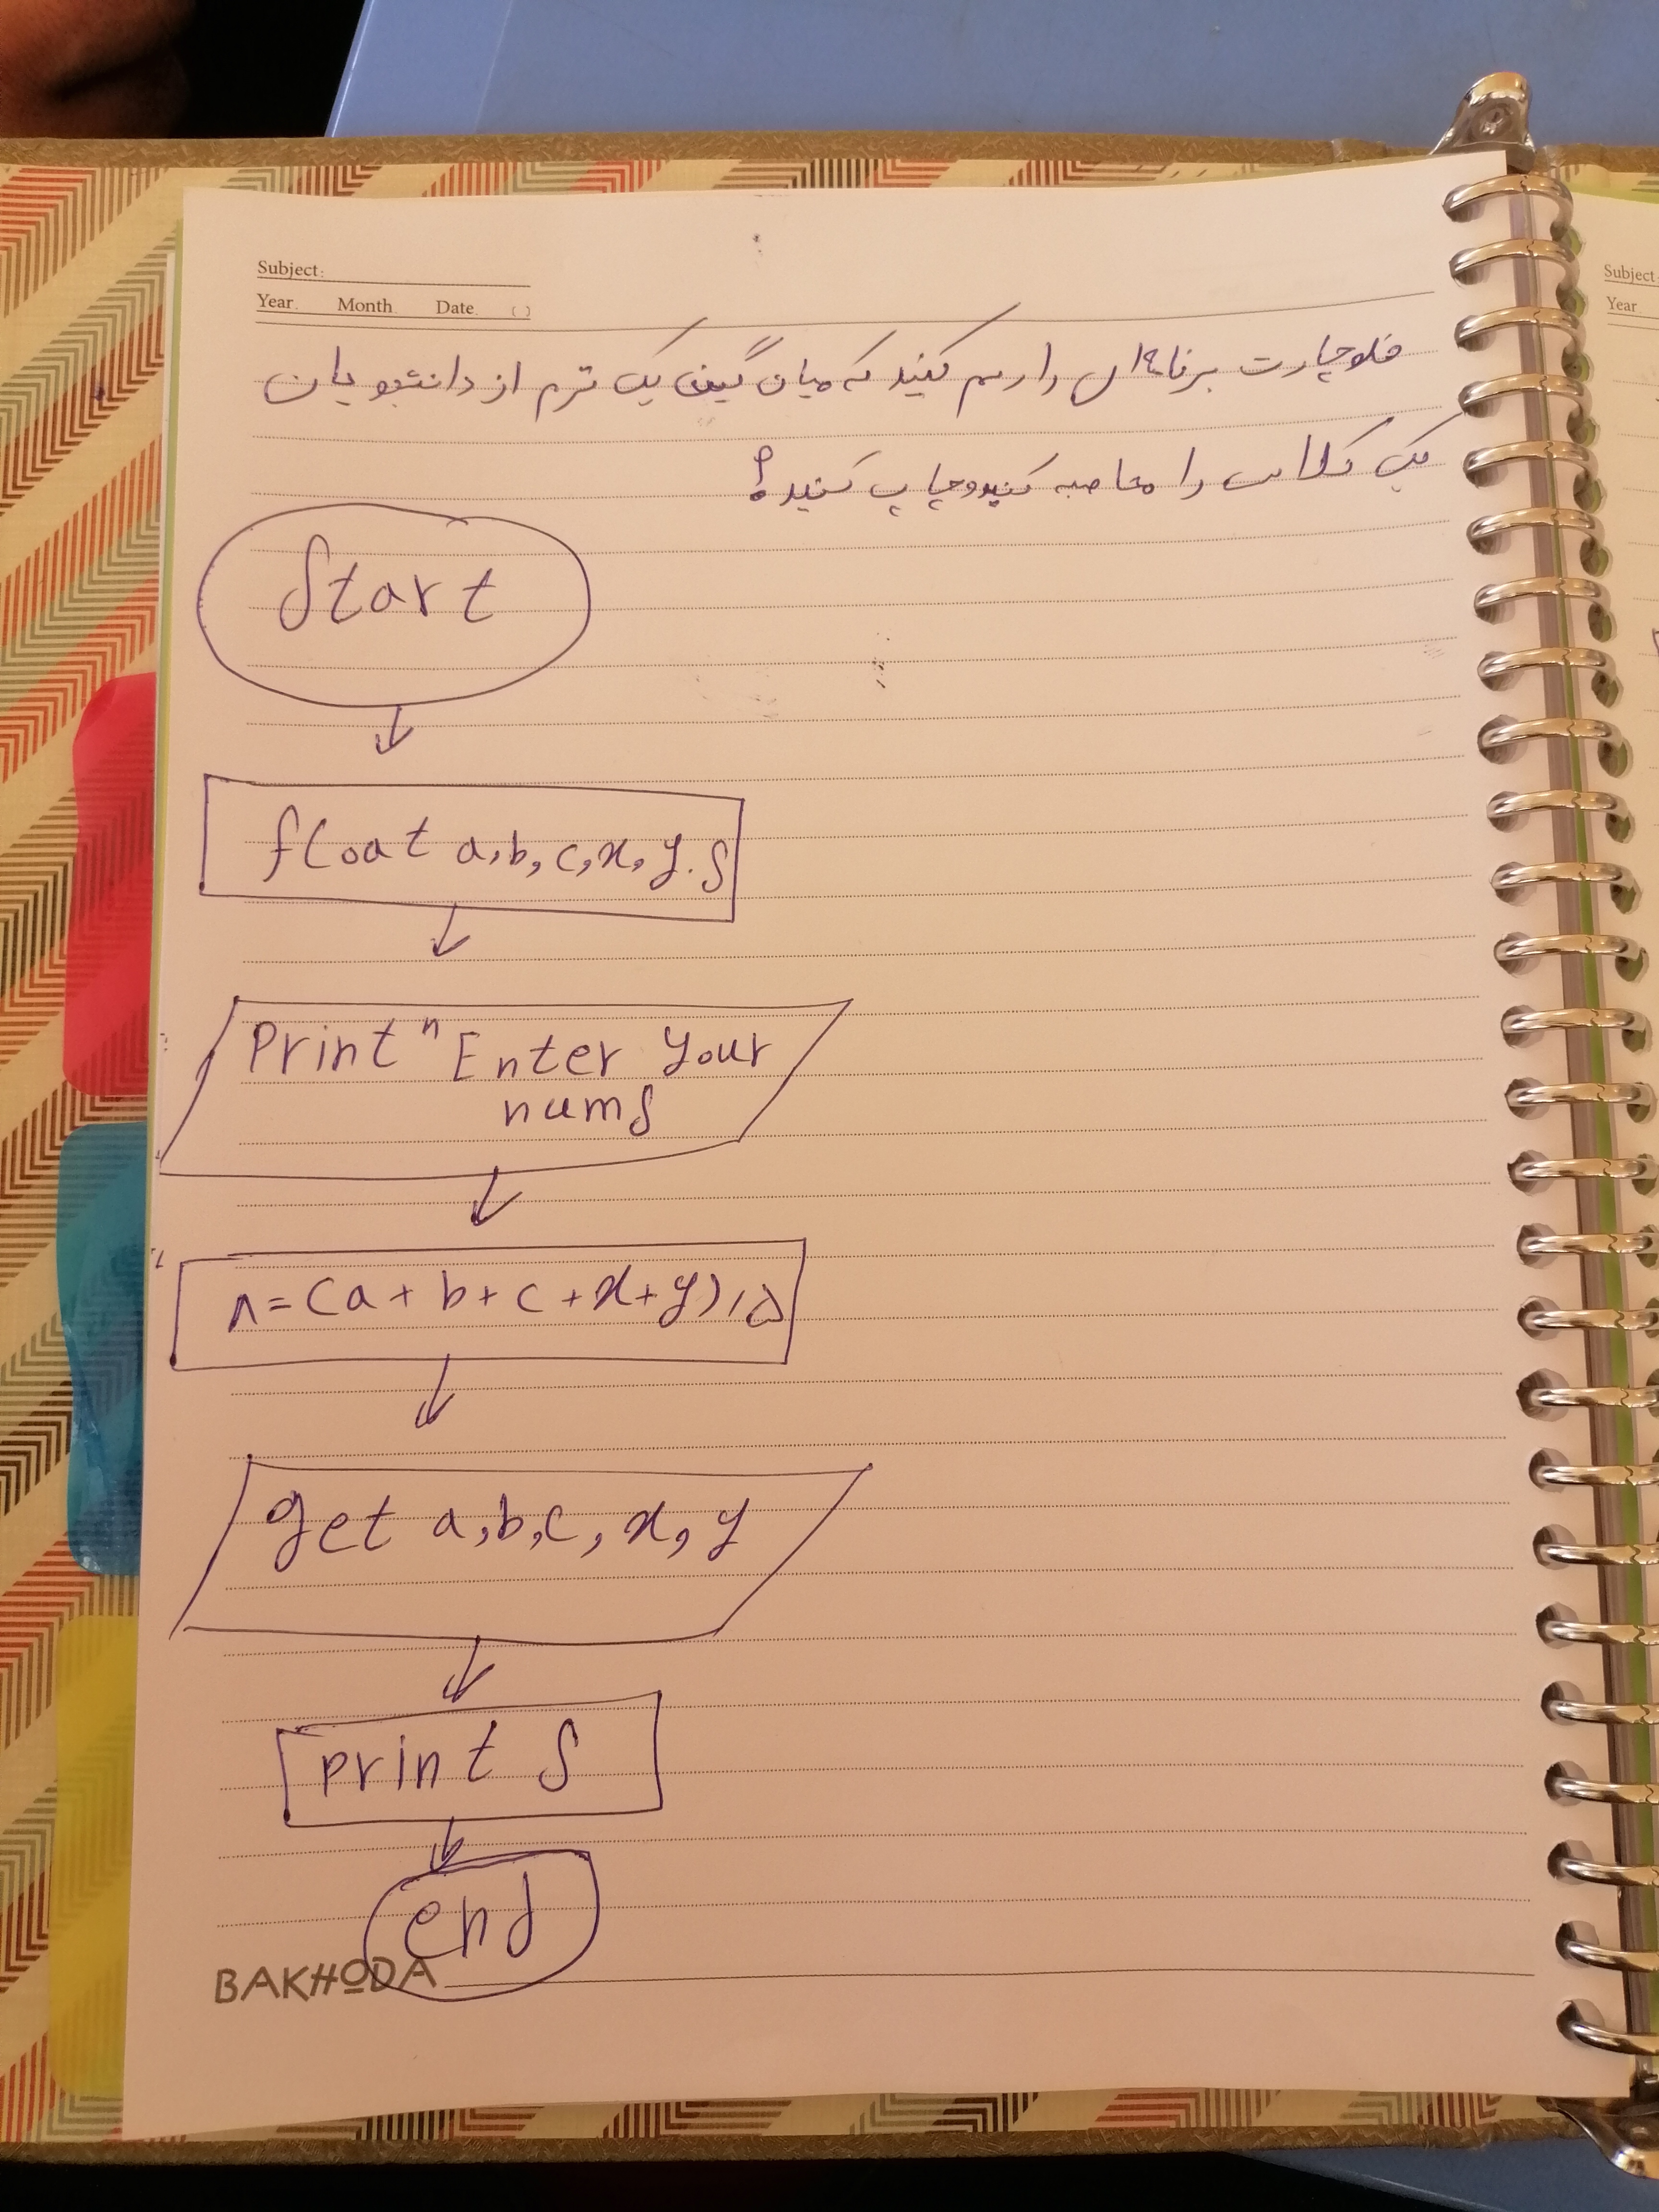 Subject:
Year. Month. Date. ( )
فلوچارت برنامه‌ای را رسم کنید که میان گین یک ترم از دانشجویان
یک کلاس را محاصبه کنیدوچاپ کنید؟
Start
float a,b,c,x,y.s
Print "Enter your
nums
=(a+b+c+x+y)/۵
get a,b,c,x,y
print s
end
BAKHODA
Subject:
Year